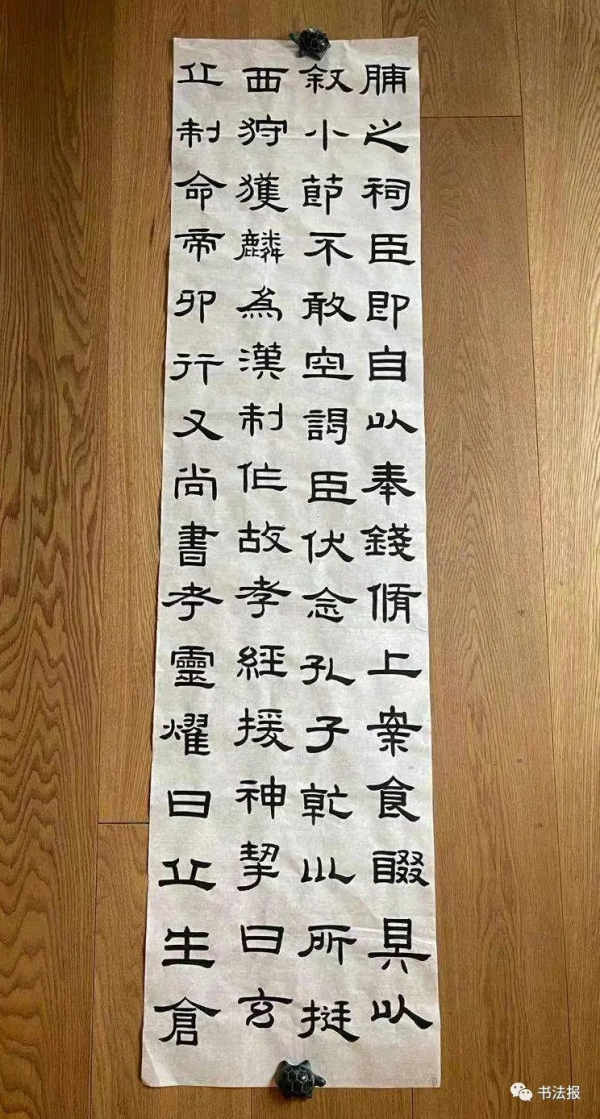 脯之祠臣即自以奉錢脩上案食醊具以
叙小節不敢空謁臣伏念孔子乾巛所挺
西狩獲麟為漢制作故孝經援神挈曰玄
丘制命帝卯行又尚書考靈燿曰丘生倉
书法报